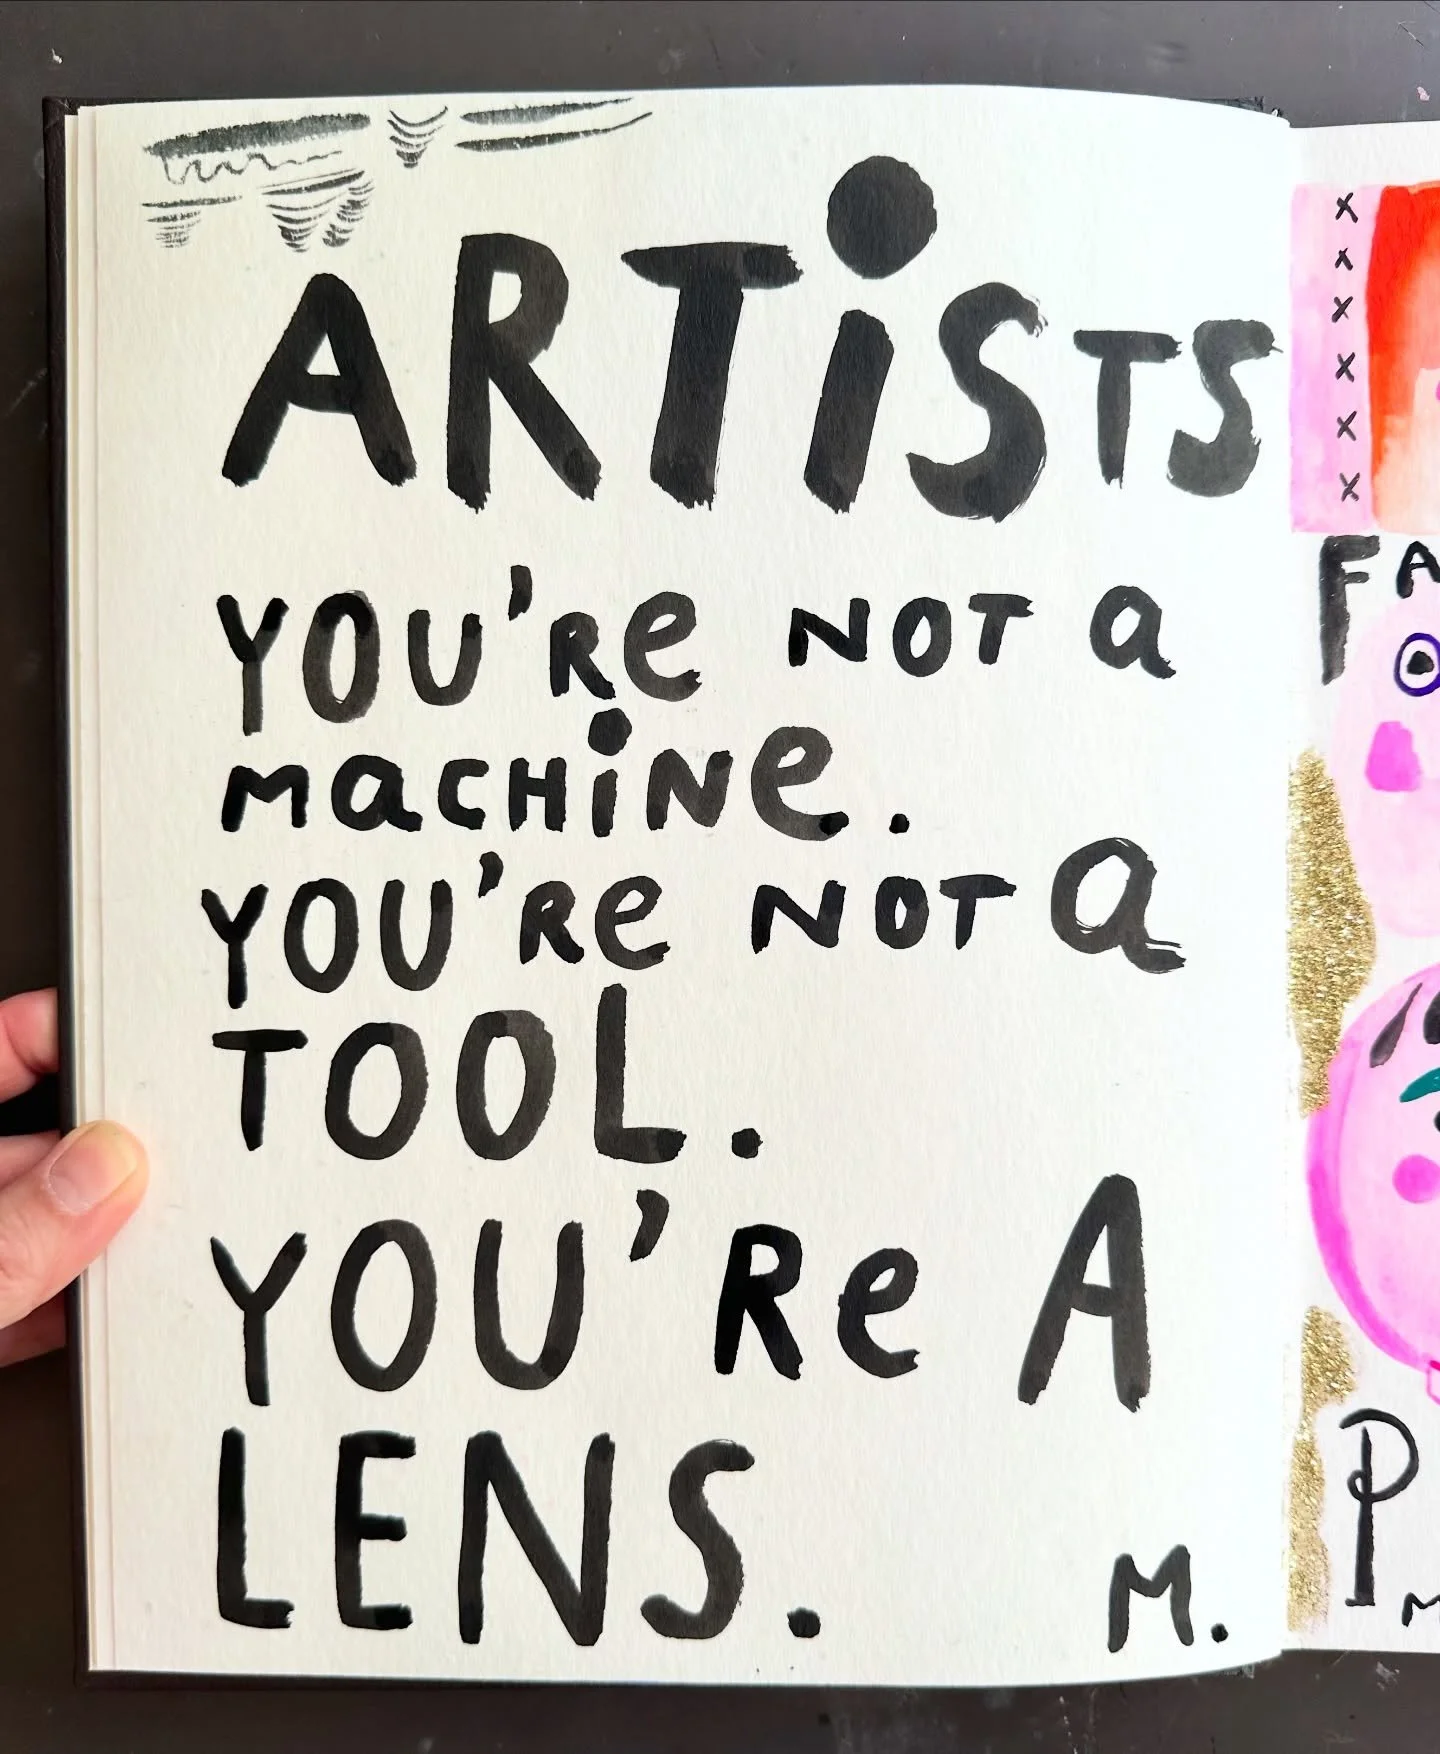 ARTiSTS
YOU'Re NOT a
MacHiNe.
YOU'Re NOT a
TOOL.
YOU'Re A
LENS.
M.
x
x
x
x
x
x
FA
P
M